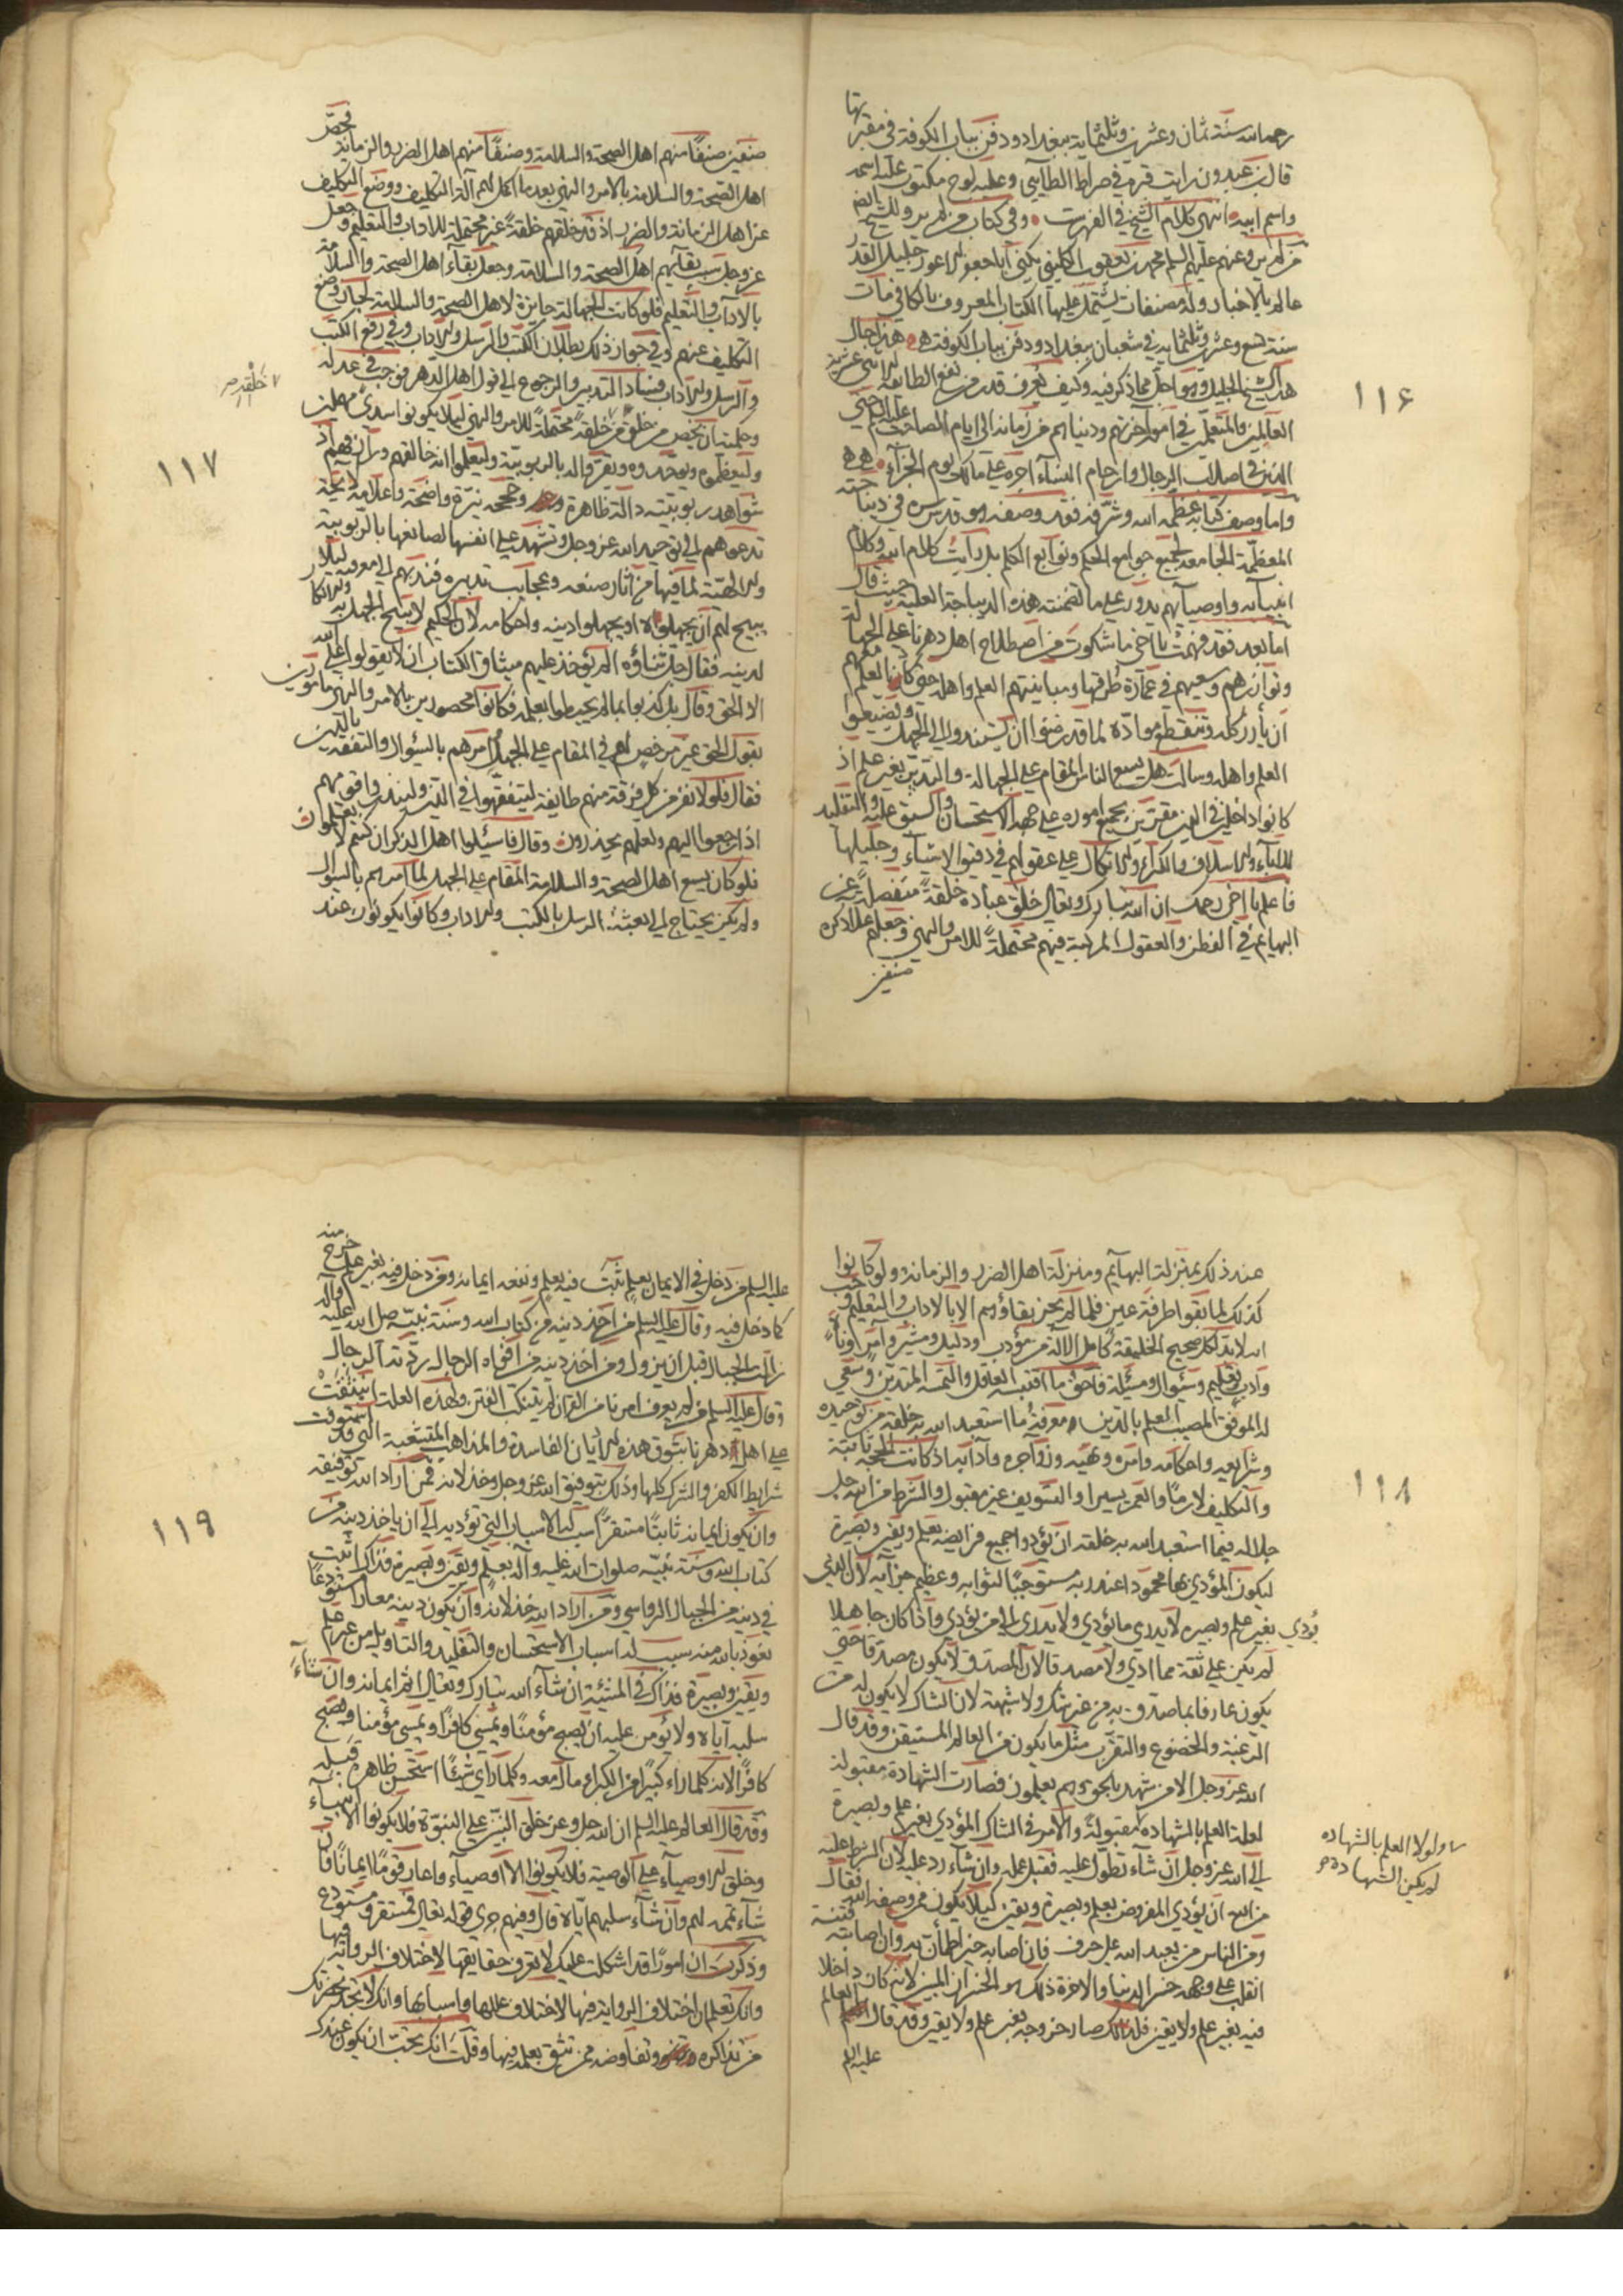 رحمه الله سنة ثمان وعشرين وثلثمایة ببغداد ودفن بباب الكوفة في مقبرتها
قال ابن عبدون رايت قبره في صراط الطايي وعليه لوح مكتوب عليه اسمه
واسم ابيه انتهى كلام الشيخ في الفهرست وفي كتاب من لم يرو للشيخ ايضا
من لم يرو عنهم عليهم السلم محمد بن يعقوب الكليني يكنى أبا جعفر الاعور جليل القدر
عالم بالاخبار وله مصنفات يشتمل عليها الكتاب المعروف بالكافي مات
سنة تسع وعشرين وثلثمایة في شعبان ببغداد ودفن بباب الكوفة هذا حال
هذا الشيخ الجليل وهو اجل مما ذكر فيه وكيف يعرف قدر من نفع الطائفة
العالمين والمتعلمين في امور آخرتهم ودنياهم من زمانه الى ايام الصاحب عليه السلم حتى
الذين في اصلاب الرجال وارحام النساء اجره على مالك يوم الجزاء
واما وصف كتابه عظمه الله وشرفه فقد وصفه هو قدس سره في ديباجته
المعظمة الجامعة لجميع جوامع الحكم ونوابع الكلم بل رأيت كلام الله وكلام
انبيائه واوصيائهم يدور على ما تضمنته هذه الديباجة العلية حيث قال
اما بعد فقد فهمت يا اخي ما شكوت من اصطلاح اهل دهرنا على الجهالة
وتوازرهم وسعيهم في عمارة طرقها ومباينتهم العلم واهله حتى كاد العلم معهم
ان يأزر كله وتنقطع مواده لما قد رضوا ان يستندوا الى الجهل ويضيعوا
العلم واهله وسالت هل يسع الناس المقام على الجهالة والتدين بغير علم اذ
كانوا داخلين في الدين مقرين بجميع اموره على جهة الاستحسان والسبق عليه والتقليد
للاباء والاسلاف والكبراء والاتكال على عقولهم في دقيق الاشياء وجليلها
فاعلم يا اخي رحمك ان الله تبارك وتعالى خلق عباده خلقة منفصلة من
البهايم في الفطن والعقول المركبة فيهم محتملة للامر والنهي وجعلهم جل ذكره
صنفين
۱۱۶
صنفين صنفًا منهم اهل الصحة والسلامة وصنفًا منهم اهل الضرر والزمانة فخص
اهل الصحة والسلامة بالامر والنهي بعد ما اكمل لهم آلة التكليف ووضع التكليف
عن اهل الزمانة والضرر اذ قد خلقهم خلقة غير محتملة للاداب والتعليم وجعل
عز وجل سبب بقائهم اهل الصحة والسلامة وجعل بقاء اهل الصحة والسلامة
بالاداب والتعليم فلو كانت الجهالة جايزة لاهل الصحة والسلامة لجاز وضع
التكليف عنهم وفي جواز ذلك بطلان الكتب والرسل والاداب وفي رفع الكتب
والرسل والاداب فساد التدبير والرجوع الى قول اهل الدهر فوجب في عدله
وحكمته ان يخص من خلق من خلقه خلقة محتملة للامر والنهي لئلا يكونوا سدى مهملين
وليعظموه ويوحدوه ويقروا له بالربوبية وليعلموا انه خالقهم ورازقهم اذ
شواهد ربوبيته دالة ظاهرة وحججه نيرة واضحة واعلامه لايحة
تدعوهم الى توحيد الله عز وجل وتشهد على انفسها لصانعها بالربوبية
والالهية لما فيها من آثار صنعه وعجايب تدبيره فندبهم الى معرفته لئلا
يبيح لهم ان يجهلوه او يجهلوا دينه واحكامه لان الحكيم لا يبيح الجهل به والانكار
لدينه فقال جل ثناؤه الم يؤخذ عليهم ميثاق الكتاب ان لا يقولوا على الله
الا الحق وقال بل كذبوا بما لم يحيطوا بعلمه فكانوا محصورين بالامر والنهي مامورين
بقول الحق غير مرخص لهم في المقام على الجهل امرهم بالسؤال والتفقه في الدين
فقال فلولا نفر من كل فرقة منهم طايفة ليتفقهوا في الدين ولينذروا قومهم
اذا رجعوا اليهم ولعلهم يحذرون وقال فاسئلوا اهل الذكر ان كنتم لا يعلمون
فلو كان يسع اهل الصحة والسلامة المقام على الجهل لما امرهم بالسؤال
ولم يكن يحتاج الى بعثة الرسل بالكتب والاداب وكانوا يكونون عند
خلقه ص
۱۱۷
عند ذلك بمنزلة البهايم ومنزلة اهل الضرر والزمانة ولو كانوا
كذلك لما بقوا طرفة عين فلما لم يجز بقاؤهم الا بالاداب والتعليم وجب
انه لا بد لكل صحيح الخلقة كامل الالة من مؤدب ودليل ومشير وآمر وناه
وادب وتعليم وسؤال ومسئلة فاحق ما اقتبسه العاقل والتمسه المتدين وسعى
له الموفق المصيب العلم بالدين ومعرفة ما استعبد الله به خلقه من توحيده
وشرايعه واحكامه وامره ونهيه وزواجره وآدابه اذ كانت الحجة ثابتة
والتكليف لازما والعمر يسيرا والتسويف غير مقبول والشرط من الله جل
جلاله فيما استعبد الله به خلقه ان يؤدوا جميع فرايضه بعلم ويقين وبصيرة
ليكون المؤدي لها محمودا عند ربه مستوجبًا لثوابه وعظيم جزائه لان الذي
يؤدي بغير علم وبصيره لا يدري ما يؤدي ولا يدري الى من يؤدي واذا كان جاهلا
لم يكن على ثقة مما ادى ولا مصدقا لان المصدق لا يكون مصدقا حتى
يكون عارفا بما صدق به من غير شك ولا شبهة لان الشاك لا يكون له من
الرغبة والخضوع والتقرب مثل ما يكون من العالم المستيقن وقد قال
الله عز وجل الا من شهد بالحق وهم يعلمون فصارت الشهادة مقبولة
لعلة العلم بالشهاده مقبولة والامر في الشاك المؤدي بغير علم وبصيرة
الى الله عز وجل ان شاء تطول عليه فقبل عمله وان شاء رد عليه لان الشرط عليه
من الله ان يؤدي المفروض بعلم وبصيرة ويقين كيلا يكون ممن وصفه الله فقال
ومن الناس من يعبد الله على حرف فان اصابه خير اطمأن به وان اصابته فتنة
انقلب على وجهه خسر الدنيا والاخرة ذلك هو الخسران المبين لانه كان داخلا
فيه بغير علم ولا يقين فلذلك صار خروجه بغير علم ولا يقين وقد قال العالم
عليه السلم
ولولا العلم بالشهاده
لم يكن الشهادة
۱۱۸
عليه السلم من دخل في الايمان بعلم ثبت فيه بعلم ونفعه ايمانه ومن دخل فيه بغير علم خرج منه
كما دخل فيه وقال عليه السلم من اخذ دينه من كتاب الله وسنة نبيه صلى الله عليه وآله
زالت الجبال قبل ان يزول ومن اخذ دينه من افواه الرجال ردته الرجال
وقال عليه السلم من لم يعرف امرنا من القران لم يتنكب الفتن ولهذه العلة انبثقت
على اهل دهرنا بثوق هذه الاديان الفاسدة والمذاهب المتشعبة التي قد استوفت
شرايط الكفر والشرك كلها وذلك بتوفيق الله عز وجل وخذلانه فمن اراد الله توفيقه
وان يكون ايمانه ثابتًا مستقرًا سبب له الاسباب التي تؤديه الى ان ياخذ دينه من
كتاب الله وسنة نبيه صلوات الله عليه وآله بعلم ويقين وبصيرة فذاك اثبت
في دينه من الجبال الرواسي ومن اراد الله خذلانه وان يكون دينه معارا مستودعا
نعوذ بالله منه سبب له اسباب الاستحسان والتقليد والتاويل من غير علم
ويقين وبصيرة فذاك في المشيئة ان شاء الله تبارك وتعالى اتم ايمانه وان شاء
سلبه اياه ولا يؤمن عليه ان يصبح مؤمنًا ويمسي كافرًا ويمسي مؤمنا ويصبح
كافرًا لانه كلما راى كبيرًا من الكبراء مال معه وكلما راى شيئًا استحسن ظاهره قبله
وقد قال العالم عليه السلم ان الله جل وعز خلق النبيين على النبوة فلا يكونوا الا انبياء
وخلق الاوصياء على الوصية فلا يكونوا الا اوصياء واعار قومًا ايمانًا فان
شاء تممه لهم وان شاء سلبهم اياه قال وفيهم جرى قوله تعالى فمستقر ومستودع
وذكرت ان امورًا قد اشكلت عليك لا تعرف حقايقها لاختلاف الرواية فيها
وانك تعلم ان اختلاف الرواية فيها لاختلاف عللها واسبابها وانك لا تجد بحضرتك
من تذاكره وتفاوضه ممن تثق بعلمه فيها وقلت انك تحب ان يكون عندك
۱۱۹